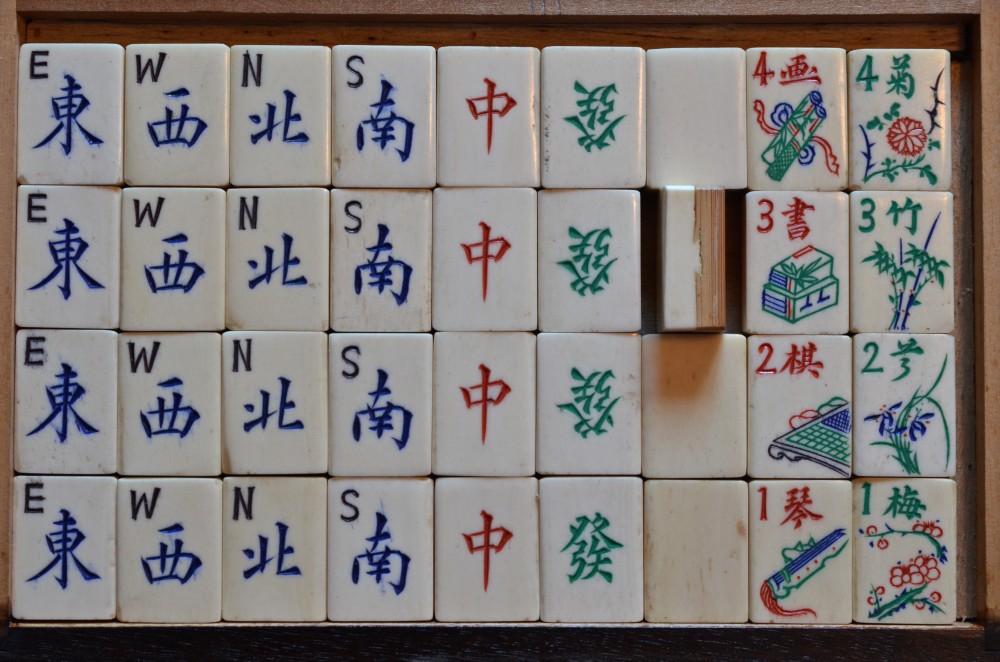 E 東 W 西 N 北 S 南 中 發 4 画 4 菊
E 東 W 西 N 北 S 南 中 發 3 書 3 竹
E 東 W 西 N 北 S 南 中 發 2 棋 2
E 東 W 西 N 北 S 南 中 發 1 琴 1 梅